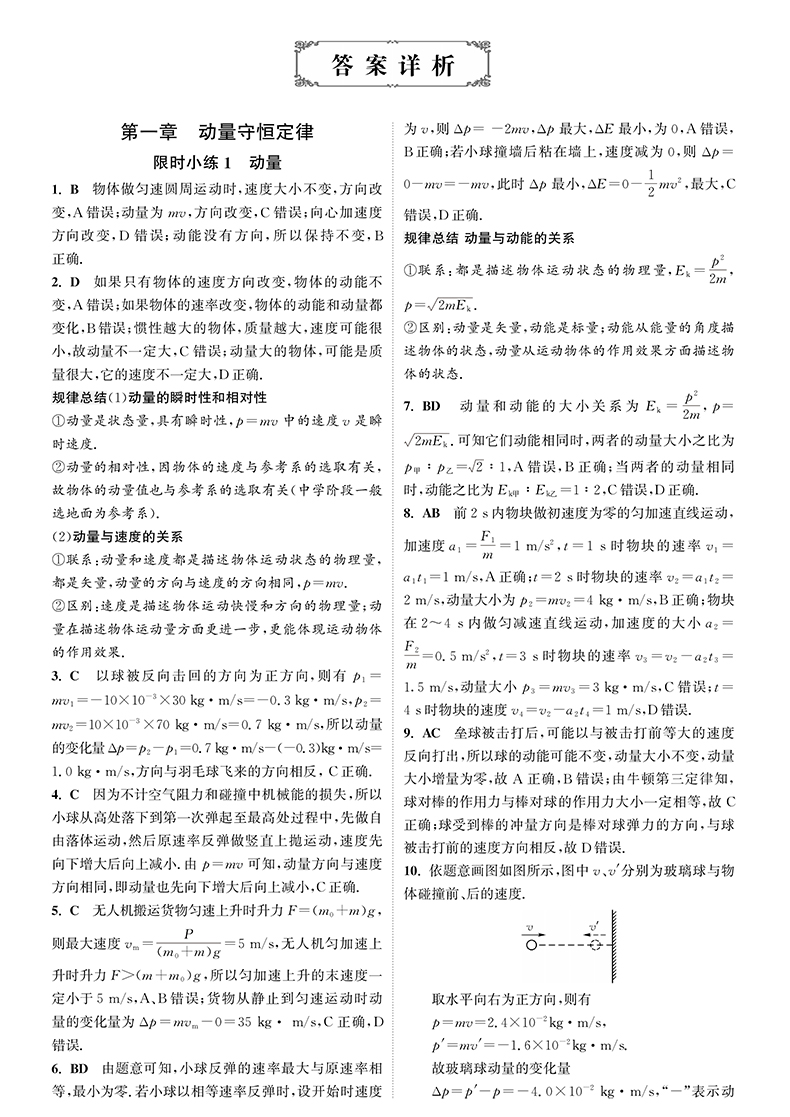 答案详析
第一章　动量守恒定律
限时小练1　动量
1. B　物体做匀速圆周运动时,速度大小不变,方向改
变,A错误;动量为mv,方向改变,C错误;向心加速度
方向改变,D错误;动能没有方向,所以保持不变,B
正确.
2. D　如果只有物体的速度方向改变,物体的动能不
变,A错误;如果物体的速率改变,物体的动能和动量都
变化,B错误;惯性越大的物体,质量越大,速度可能很
小,故动量不一定大,C错误;动量大的物体,可能是质
量很大,它的速度不一定大,D正确.
规律总结(1)动量的瞬时性和相对性
①动量是状态量,具有瞬时性,p=mv中的速度v是瞬
时速度.
②动量的相对性,因物体的速度与参考系的选取有关,
故物体的动量值也与参考系的选取有关(中学阶段一般
选地面为参考系).
(2)动量与速度的关系
①联系:动量和速度都是描述物体运动状态的物理量,
都是矢量,动量的方向与速度的方向相同,p=mv.
②区别:速度是描述物体运动快慢和方向的物理量;动
量在描述物体运动量方面更进一步,更能体现运动物体
的作用效果.
3. C　以球被反向击回的方向为正方向,则有p₁=
mv₁=-10×10⁻³×30 kg·m/s=-0.3 kg·m/s,p₂=
mv₂=10×10⁻³×70 kg·m/s=0.7 kg·m/s,所以动量
的变化量Δp=p₂-p₁=0.7 kg·m/s-(-0.3)kg·m/s=
1.0 kg·m/s,方向与羽毛球飞来的方向相反,C正确.
4. C　因为不计空气阻力和碰撞中机械能的损失,所以
小球从高处落下到第一次弹起至最高处过程中,先做自
由落体运动,然后原速率反弹做竖直上抛运动,速度先
向下增大后向上减小.由p=mv可知,动量方向与速度
方向相同,即动量也先向下增大后向上减小,C正确.
5. C　无人机搬运货物匀速上升时升力F=(m₀+m)g,
则最大速度vₘ=P/((m₀+m)g)=5 m/s,无人机匀加速上
升时升力F>(m+m₀)g,所以匀加速上升的末速度一
定小于5 m/s,A、B错误;货物从静止到匀速运动时动
量的变化量为Δp=mvₘ-0=35 kg· m/s,C正确,D
错误.
6. BD　由题意可知,小球反弹的速率最大与原速率相
等,最小为零.若小球以相等速率反弹时,设开始时速度
为v,则Δp= -2mv,Δp最大,ΔE最小,为0,A错误,
B正确;若小球撞墙后粘在墙上,速度减为0,则Δp=
0-mv=-mv,此时Δp最小,ΔE=0-1/2 mv²,最大,C
错误,D正确.
规律总结 动量与动能的关系
①联系:都是描述物体运动状态的物理量,Eₖ=p²/2m,
p=√(2mEₖ).
②区别:动量是矢量,动能是标量;动能从能量的角度描
述物体的状态,动量从运动物体的作用效果方面描述物
体的状态.
7. BD　动量和动能的大小关系为Eₖ=p²/2m, p=
√(2mEₖ).可知它们动能相同时,两者的动量大小之比为
p甲∶p乙=√2∶1,A错误,B正确;当两者的动量相同
时,动能之比为Eₖ甲∶Eₖ乙=1∶2,C错误,D正确.
8. AB　前2 s内物块做初速度为零的匀加速直线运动,
加速度a₁=F₁/m=1 m/s²,t=1 s时物块的速率v₁=
a₁t₁=1 m/s,A正确;t=2 s时物块的速率v₂=a₁t₂=
2 m/s,动量大小为p₂=mv₂=4 kg·m/s,B正确;物块
在2～4 s内做匀减速直线运动,加速度的大小a₂=
F₂/m=0.5 m/s²,t=3 s时物块的速率v₃=v₂-a₂t₃=
1.5 m/s,动量大小p₃=mv₃=3 kg·m/s,C错误;t=
4 s时物块的速度v₄=v₂-a₂t₄=1 m/s,D错误.
9. AC　垒球被击打后,可能以与被击打前等大的速度
反向打出,所以球的动能可能不变,动量大小不变,动量
大小增量为零,故A正确,B错误;由牛顿第三定律知,
球对棒的作用力与棒对球的作用力大小一定相等,故C
正确;球受到棒的冲量方向是棒对球弹力的方向,与球
被击打前的速度方向相反,故D错误.
10. 依题意画图如图所示,图中v、v′分别为玻璃球与物
体碰撞前、后的速度.
v　v′
取水平向右为正方向,则有
p=mv=2.4×10⁻²kg·m/s,
p′=mv′=-1.6×10⁻²kg·m/s.
故玻璃球动量的变化量
Δp=p′-p=-4.0×10⁻² kg·m/s,“-”表示动